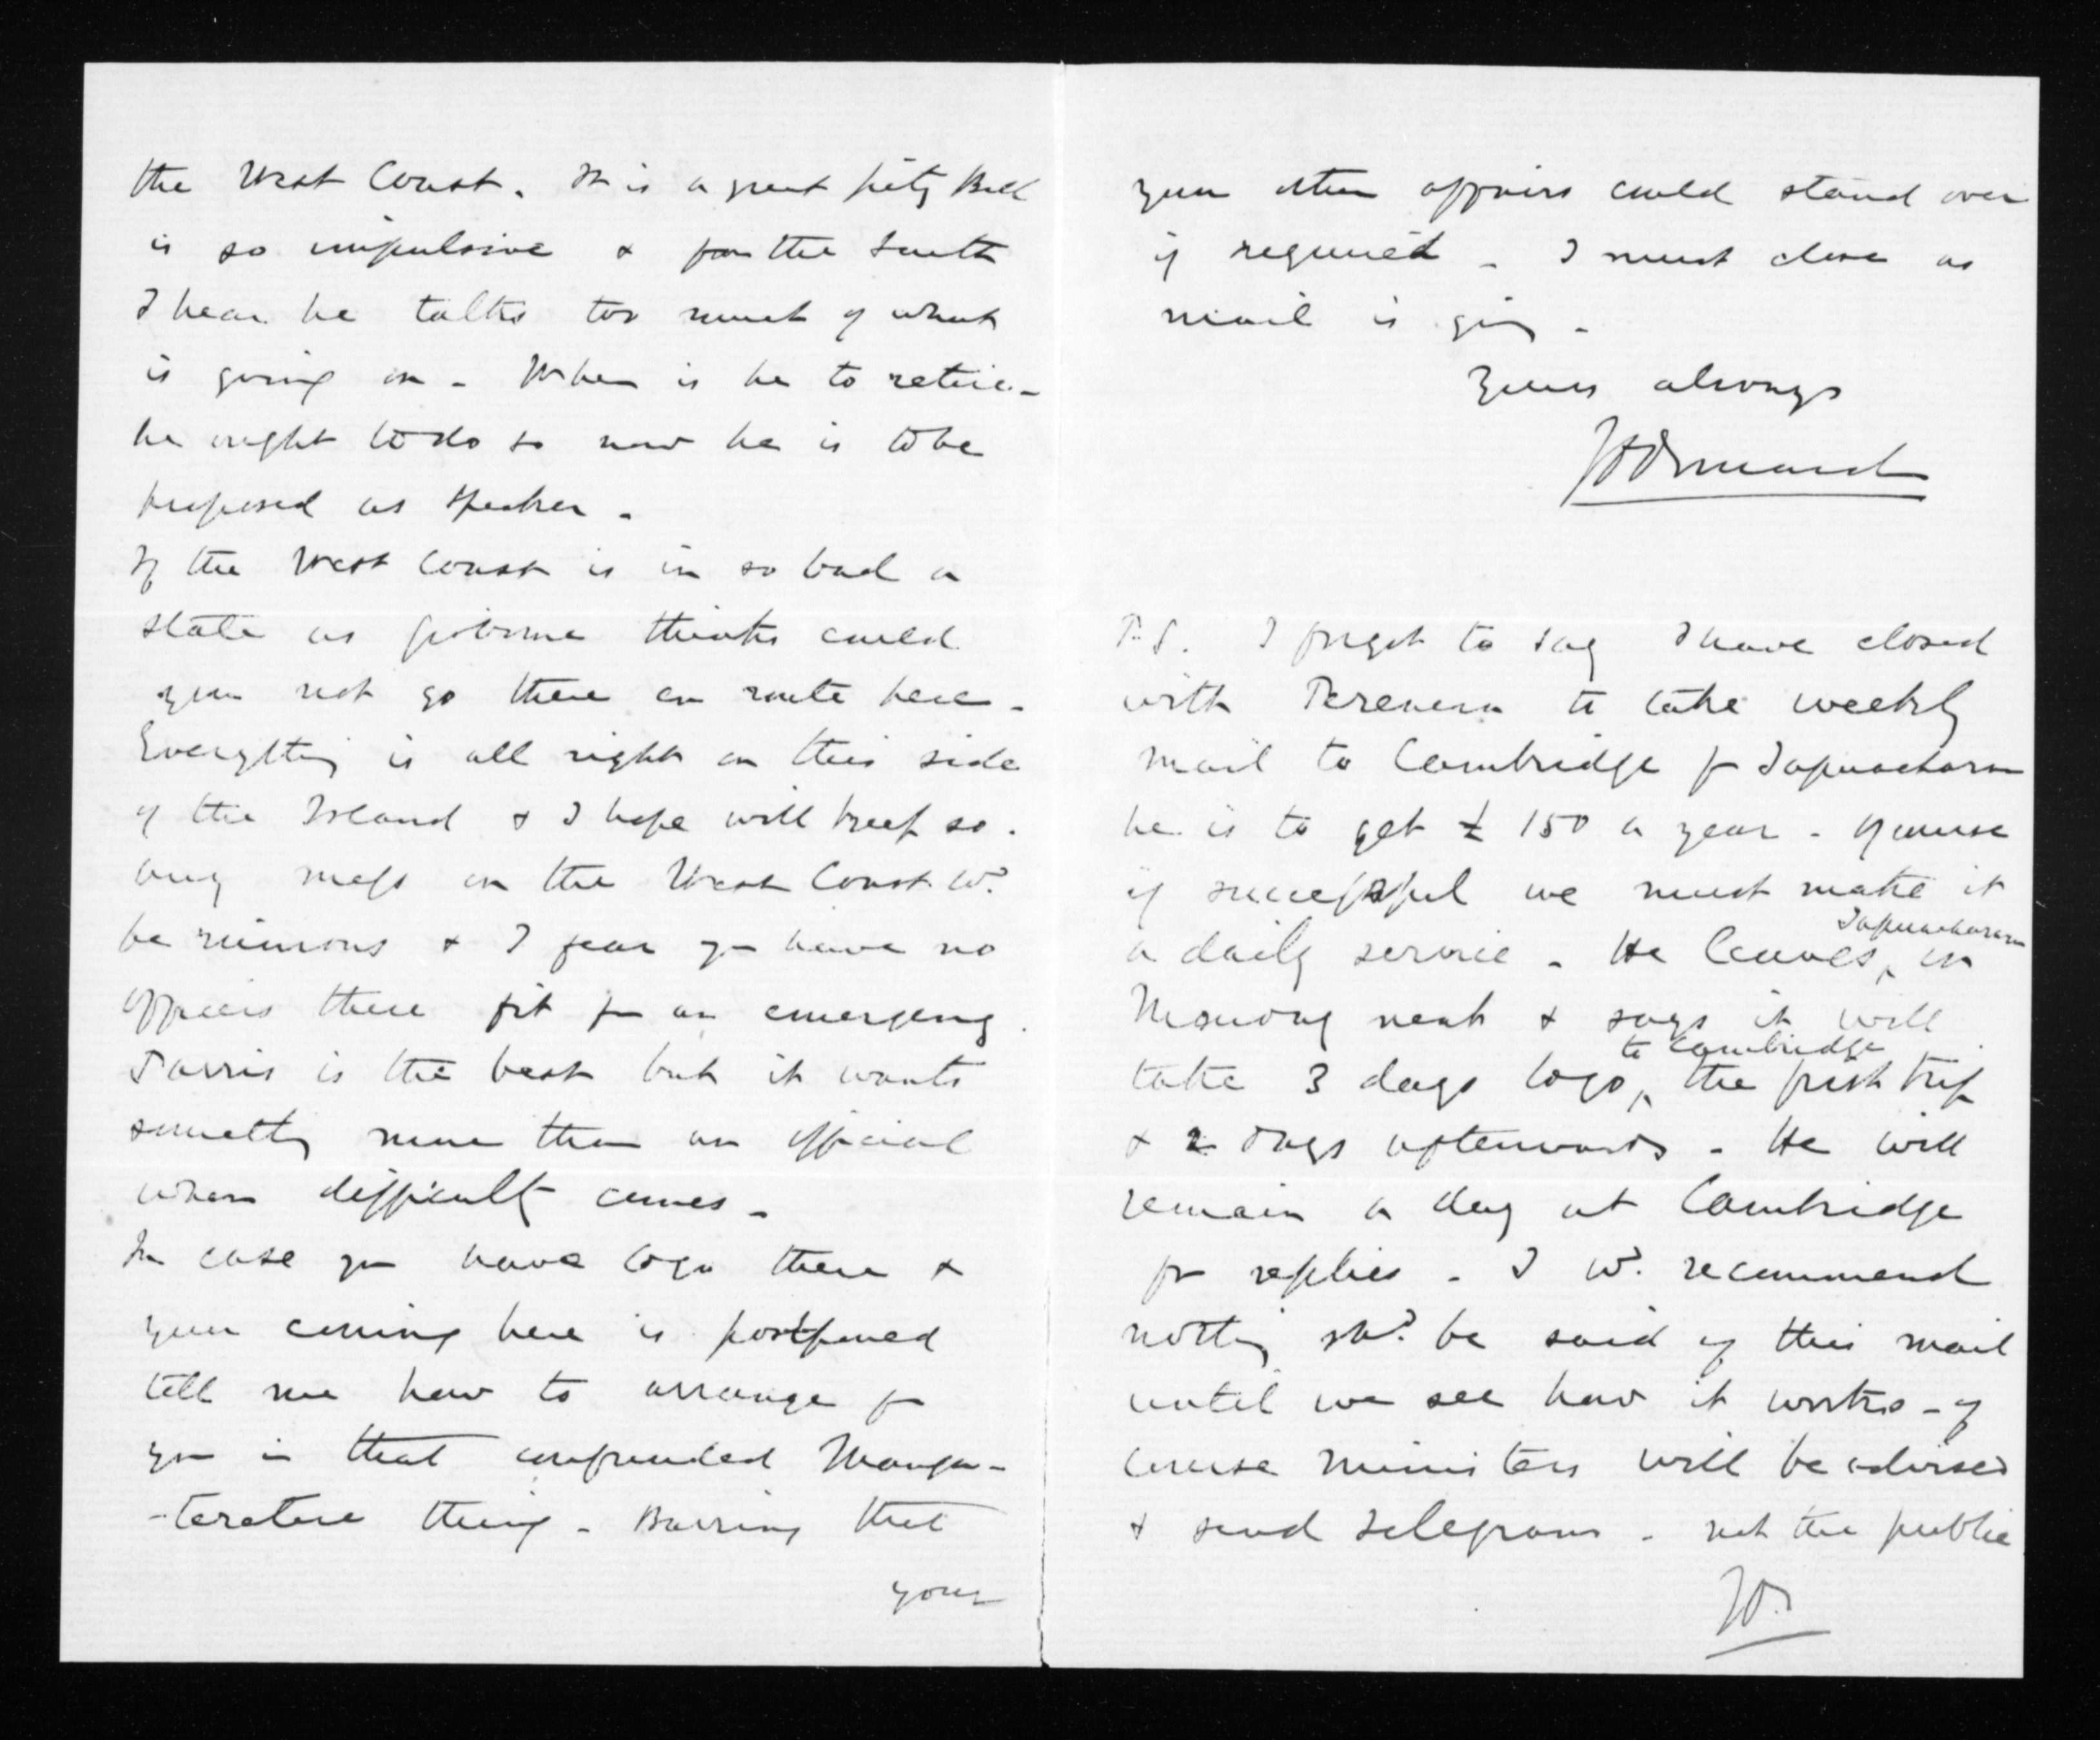 the West Coast. It is a great pity Bell
is so impulsive & from the South
I hear he talks too much of what
is going on - When is he to retire -
he ought to do so now he is to be
proposed as Speaker -
If the West Coast is in so bad a
state as Gisborne thinks could
you not go there en route here -
Everything is all right on this side
of the Island & I hope will keep so.
any mess on the West Coast wd.
be ruinous & I fear you have no
officers there fit for an emergency.
Parris is the best but it wants
something more than an official
when difficulty comes -
In case you have to go there &
your coming here is postponed
tell me how to arrange for
you in that confounded Manga-
-teretere thing - Barring that
your
your other affairs could stand over
if required - I must close as
mail is going -
Yours always
JDOrmond
P.S. I forgot to say I have closed
with Perenara to take weekly
mail to Cambridge fr Tapuaeharuru
he is to get £150 a year - of course
if successful we must make it
a daily service - He leaves, Tapuaeharuru on
Monday next & says it will
take 3 days to go, to Cambridge the first trip
& 2 days afterwards - He will
remain a day at Cambridge
for replies - I wd. recommend
nothing shd. be said of this mail
until we see how it works - of
course Ministers will be advised
& send telegrams - not the public
JDO